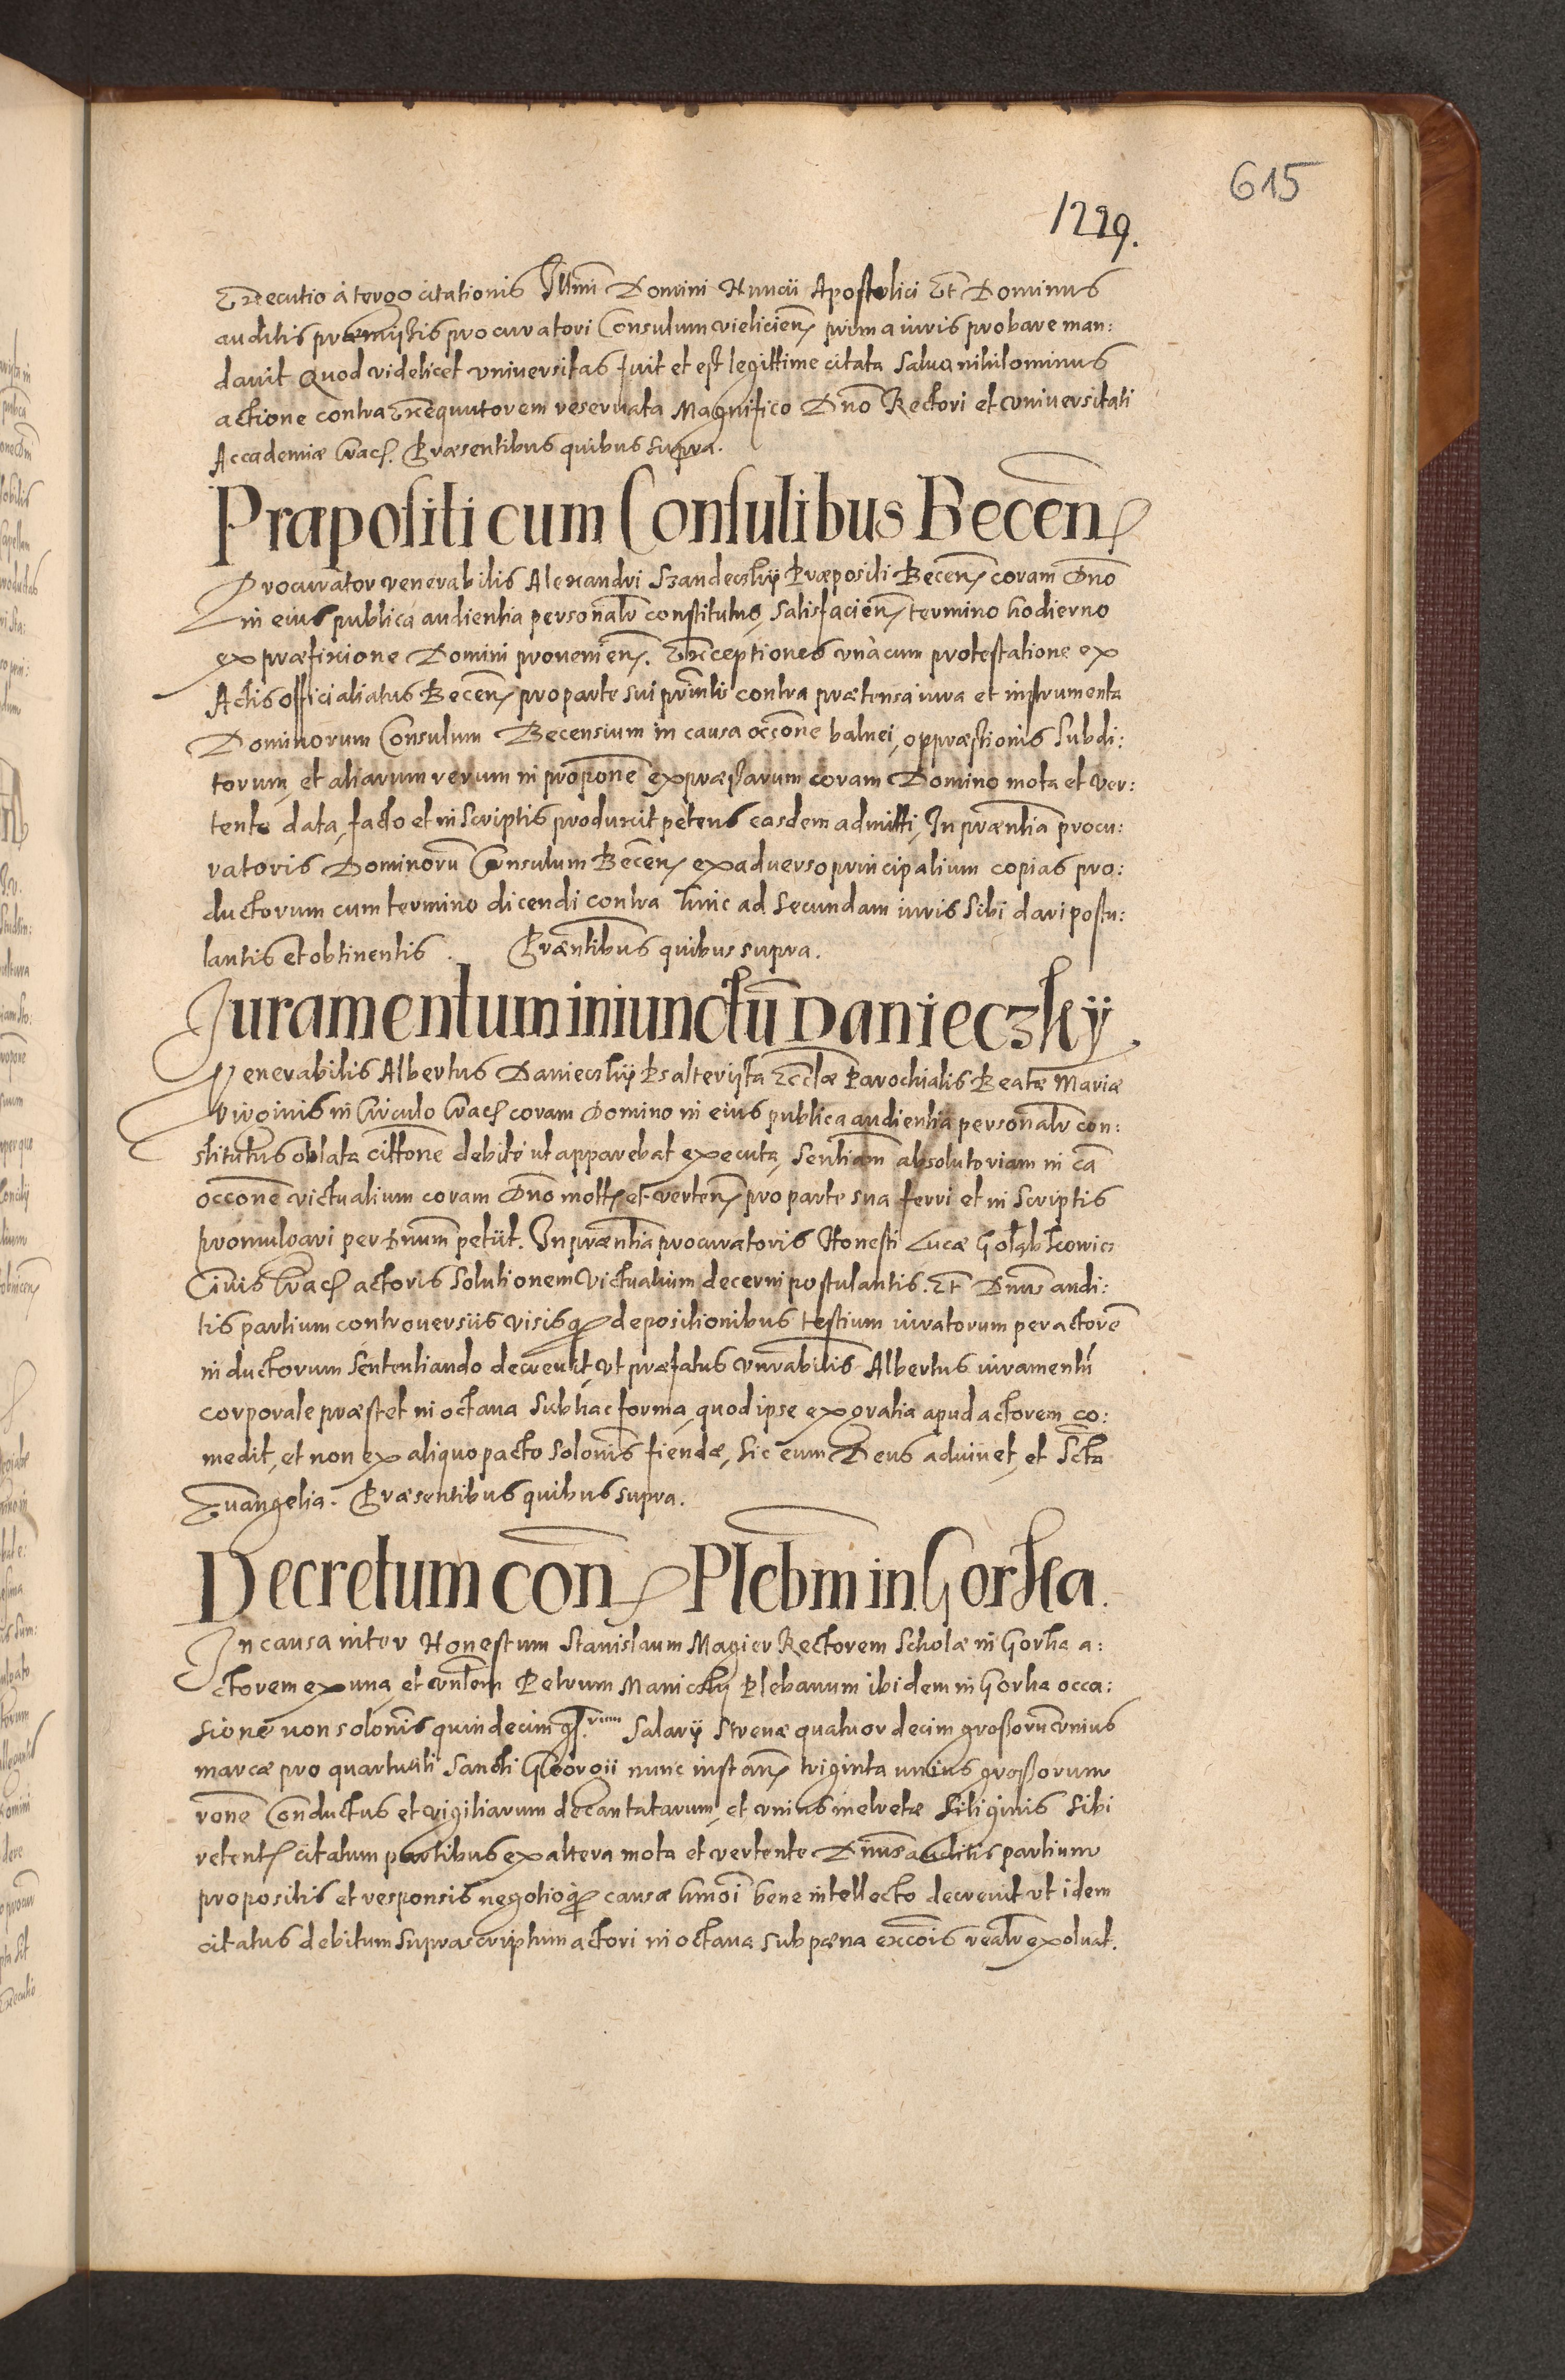 615
1229.
Executio à tergo citationis Illmi Domini Nuncii Apostolici Et Dominus
auditis præmissis procuratori Consulum vielicien prima iuris probare man:
davit Quod videlicet vniuersitas fuit et est legittime citata Salva nihilominus
actione contra Exequutorem reservata Magnifico Dno Rectori et vniuersitati
Accademiæ Crac. Præsentibus quibus supra.
Præpositi cum Consulibus Becen
Procurator venerabilis Alexandri Szandeczky Præpositi Becen coram Dno
in eius publica audientia personalr constitutus, satisfacien termino hodierno
ex præfixione Domini provenien. Exceptiones vnàcum protestatione ex
Actis officialiatus Becen pro parte sui prinlis contra prætensa iura et instrumenta
Dominorum Consulum Becensium in causa occone balnei, oppræssionis Subdi:
torum, et aliarum rerum in propone expræssarum coram Domino mota et ver:
tente data, facto et in Scriptis produxit petens easdem admitti, In præntia procu:
ratoris Dominorū Consulum Becen ex adverso principalium copias pro:
ductorum cum termino dicendi contra hinc ad Secundam iuris Sibi dari postu:
lantis et obtinentis . Præntibus quibus supra.
Juramentum iniunctū Danieczky
Venerabilis Albertus Danieczky Psalterista Ecclæ Parochialis Beatæ Mariæ
Virginis in Circulo Crac coram Domino in eius publica audientia personalr con:
stitutus oblata cittone debite ut apparebat executa, Sentiam absolutoriam in ca
occone victualium coram Dno mott et verten pro parte sua ferri et in Scriptis
promulgari per Dnum petiit. In præntia procuratoris Honesti Lucæ Gołąbkowicz
Civis Crac actoris Solutionem Victualium decerni postulantis. Et Dnus audi:
tis partium controversiis visisq depositionibus testium iuratorum per actorē
inductorum Sententiando decrevit, vt præfatus vnrabilis Albertus iuramentū
corporale præstet in octava Sub hac forma, quod ipse ex gratia apud actorem co:
medit, et non ex aliquo pacto solonis fiendæ, Sic eum Deus adiuvet, et Scta
Evangelia. Præsentibus quibus supra.
Decretum con Plebm in Gorka.
In causa inter Honestum Stanislaum Magier Rectorem Scholæ in Gorka a:
ctorem ex una, et vnlem Petrum Maniczky Plebanum ibidem in Gorka occa:
sione non solonis quindecim Salarii Strenæ quatuordecim grossorū vnius
marcæ pro quartuali Sancti Georgii nunc instan triginta unius grossorum
rone Conductus et vigiliarum decantatarum, et vnius melretæ Siliginis Sibi
retent citatum partibus ex altera mota et vertente Dnus auditis partium
propositis et responsis negotioq causæ hmoi bene intellecto decrevit vt idem
citatus debitum suprascriptum actori in octava sub pæna excois realr exolvat.